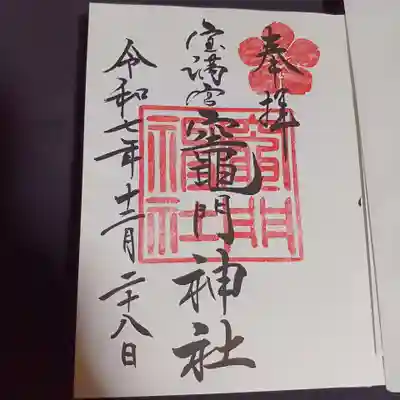 奉拝
宝満宮
竈門神社
令和七年十二月二十八日